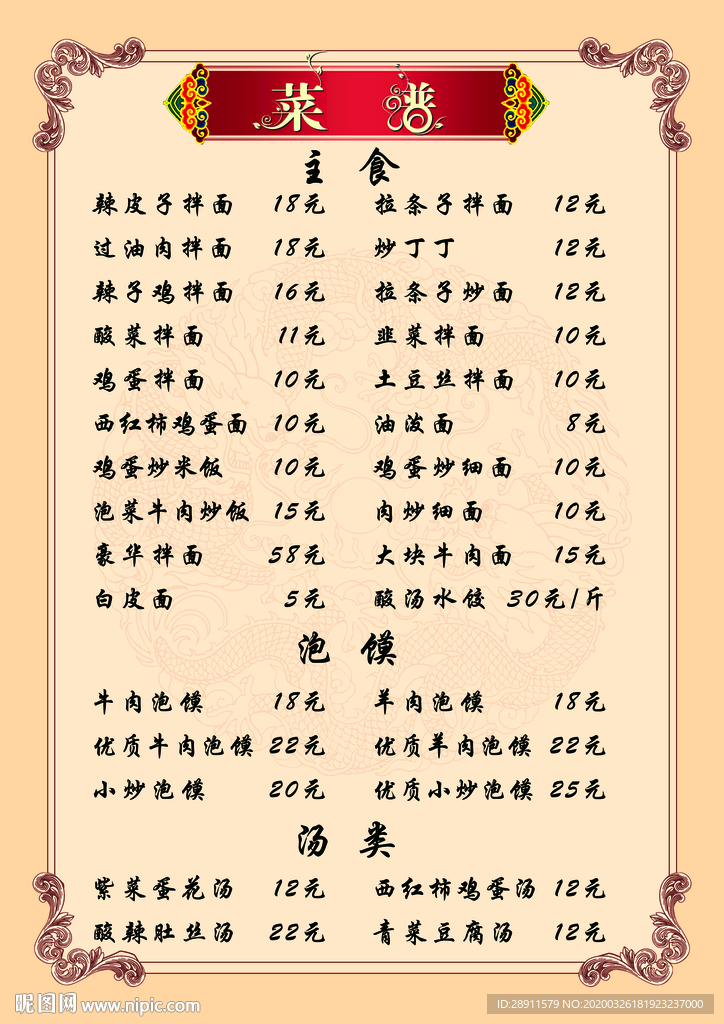 菜 谱
主 食
辣皮子拌面 18元 拉条子拌面 12元
过油肉拌面 18元 炒丁丁 12元
辣子鸡拌面 16元 拉条子炒面 12元
酸菜拌面 11元 韭菜拌面 10元
鸡蛋拌面 10元 土豆丝拌面 10元
西红柿鸡蛋面 10元 油泼面 8元
鸡蛋炒米饭 10元 鸡蛋炒细面 10元
泡菜牛肉炒饭 15元 肉炒细面 10元
豪华拌面 58元 大块牛肉面 15元
白皮面 5元 酸汤水饺 30元/斤
泡 馍
牛肉泡馍 18元 羊肉泡馍 18元
优质牛肉泡馍 22元 优质羊肉泡馍 22元
小炒泡馍 20元 优质小炒泡馍 25元
汤 类
紫菜蛋花汤 12元 西红柿鸡蛋汤 12元
酸辣肚丝汤 22元 青菜豆腐汤 12元
昵图网 www.nipic.com ID:28911579 NO:20200326181923237000